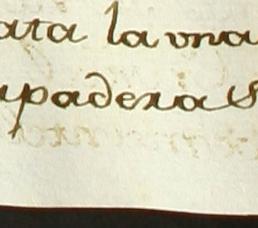 ata la vna
apadera S